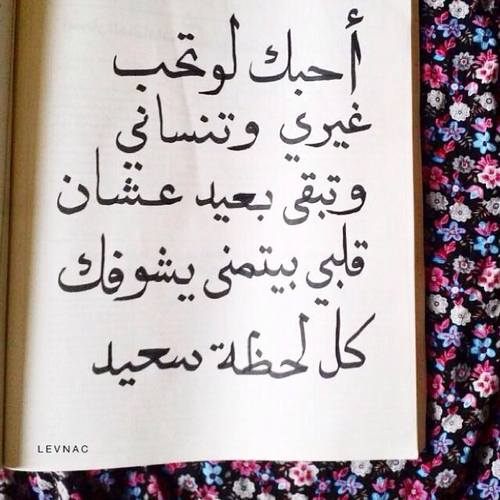 أحبك لو تحب
غيري وتنساني
وتبقى بعيد عشان
قلبي بيتمنى يشوفك
كل لحظة سعيد
LEVNAC